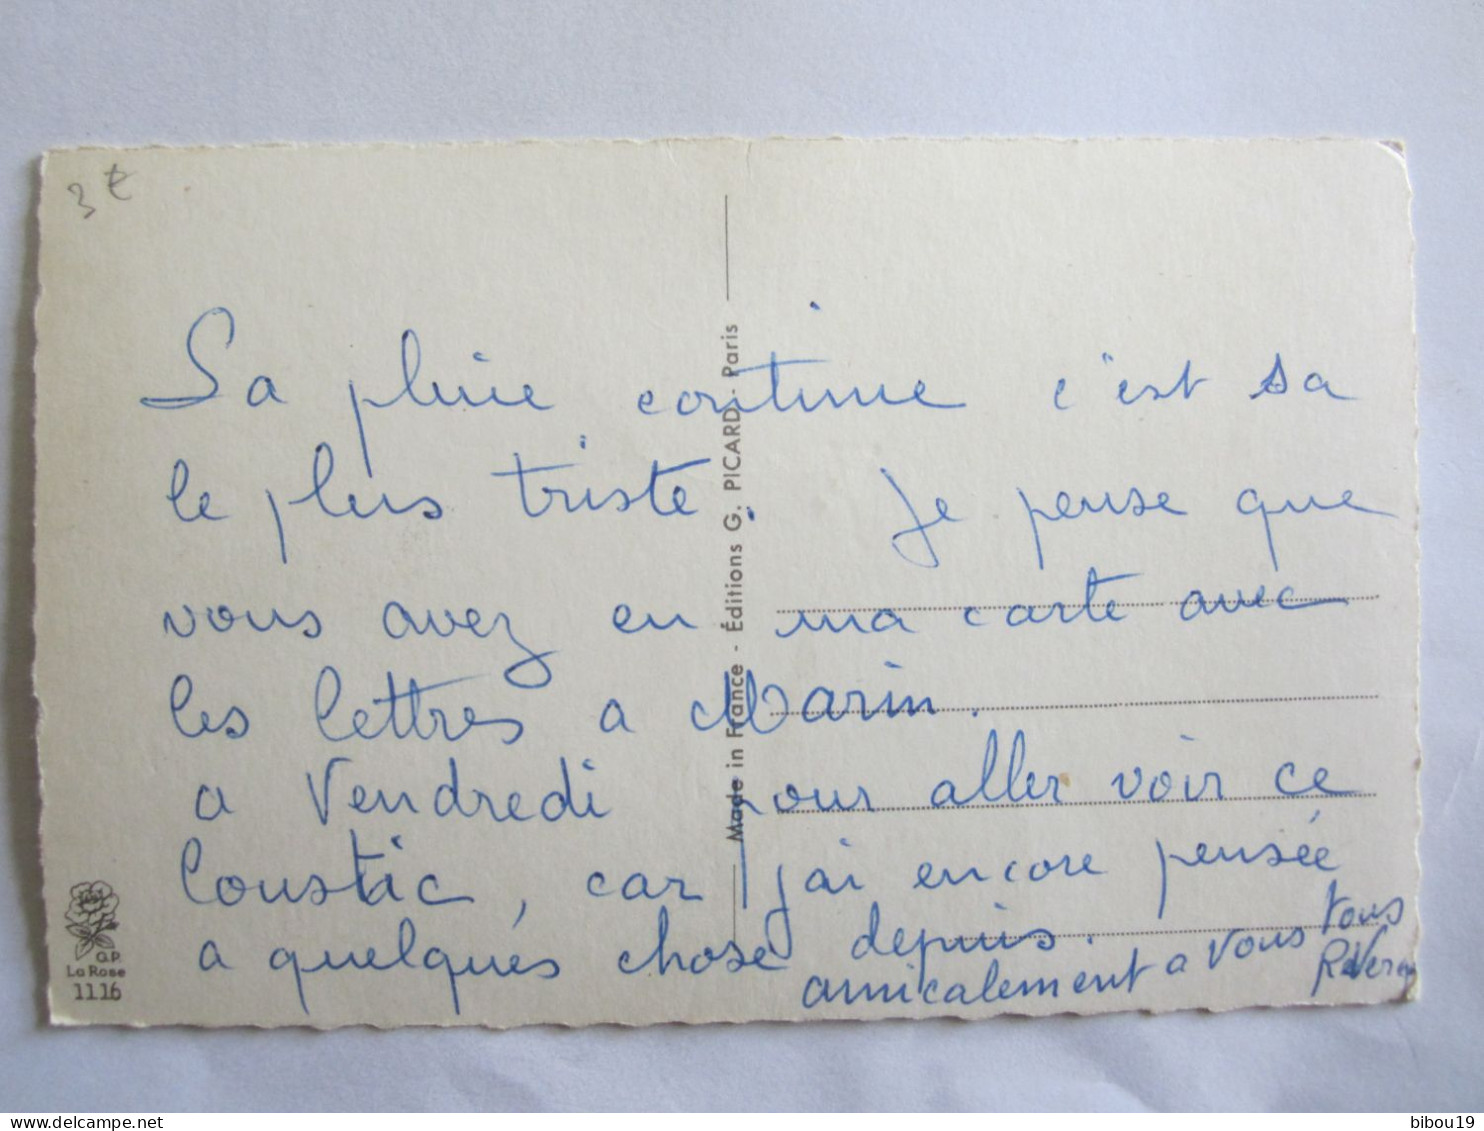 3 €
La pluie continue c'est sa
le plus triste. Je pense que
vous avez eu ma carte avec
les lettres a Marin.
a Vendredi pour aller voir ce
Loustic, car j'ai encore pensée
a quelques chose depuis.
amicalement a vous tous
Made in France - Éditions G. PICARD - Paris
G.P.
La Rose
1116
bibou19